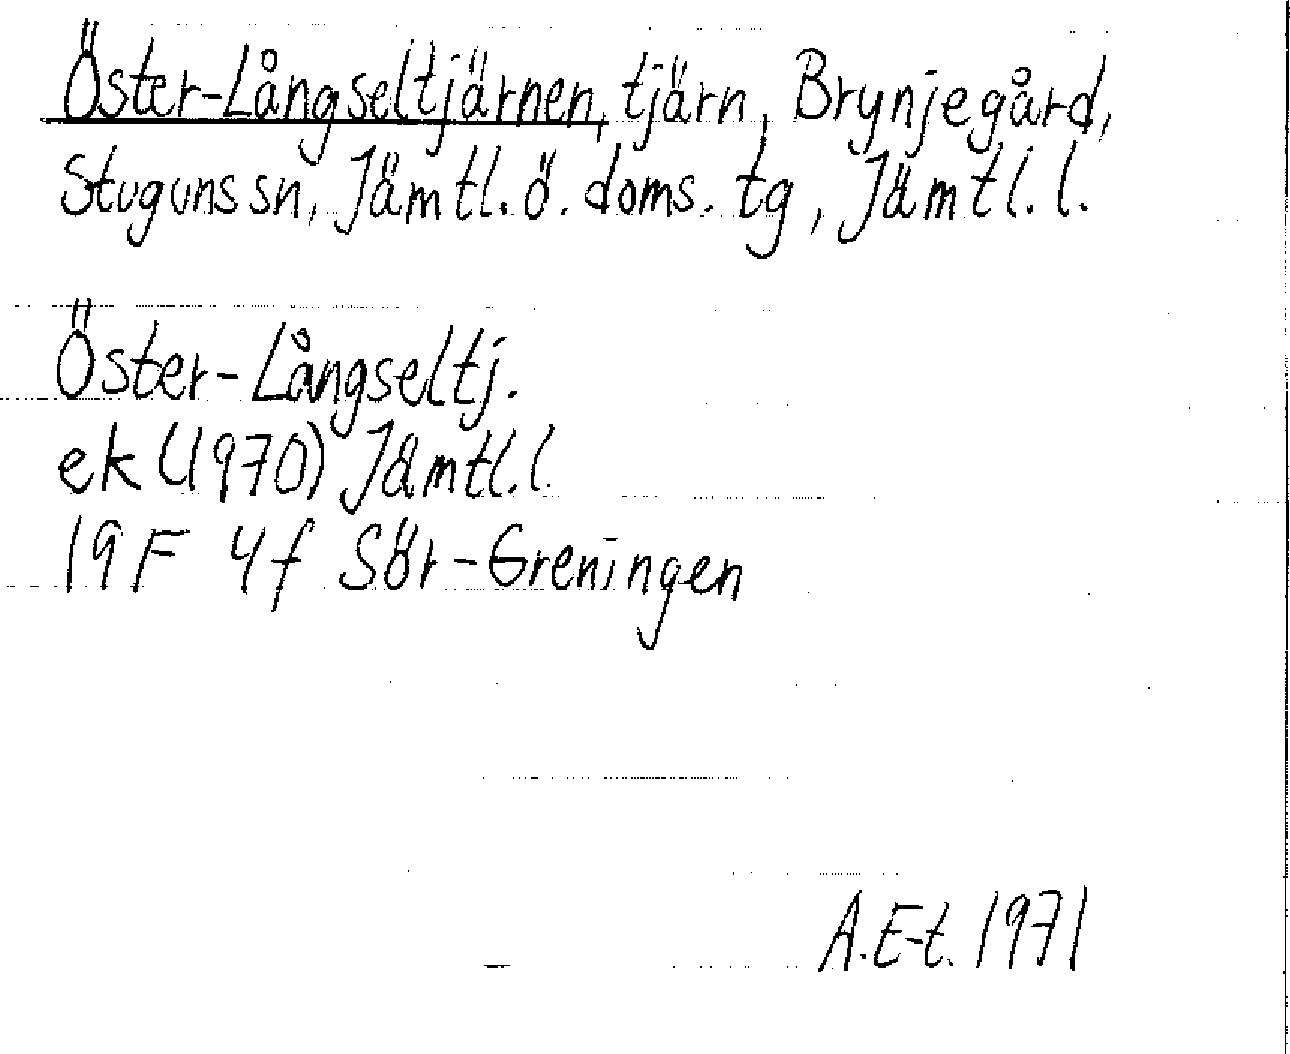 Öster-Långseltjärnen, tjärn, Brynjegård,
Stuguns sn, Jämtl. ö. doms. tg, Jämtl. l.
Öster-Långseltj.
ek (1970) Jämtl. l.
19F 4f Sör-Greningen
A. E-t. 1971